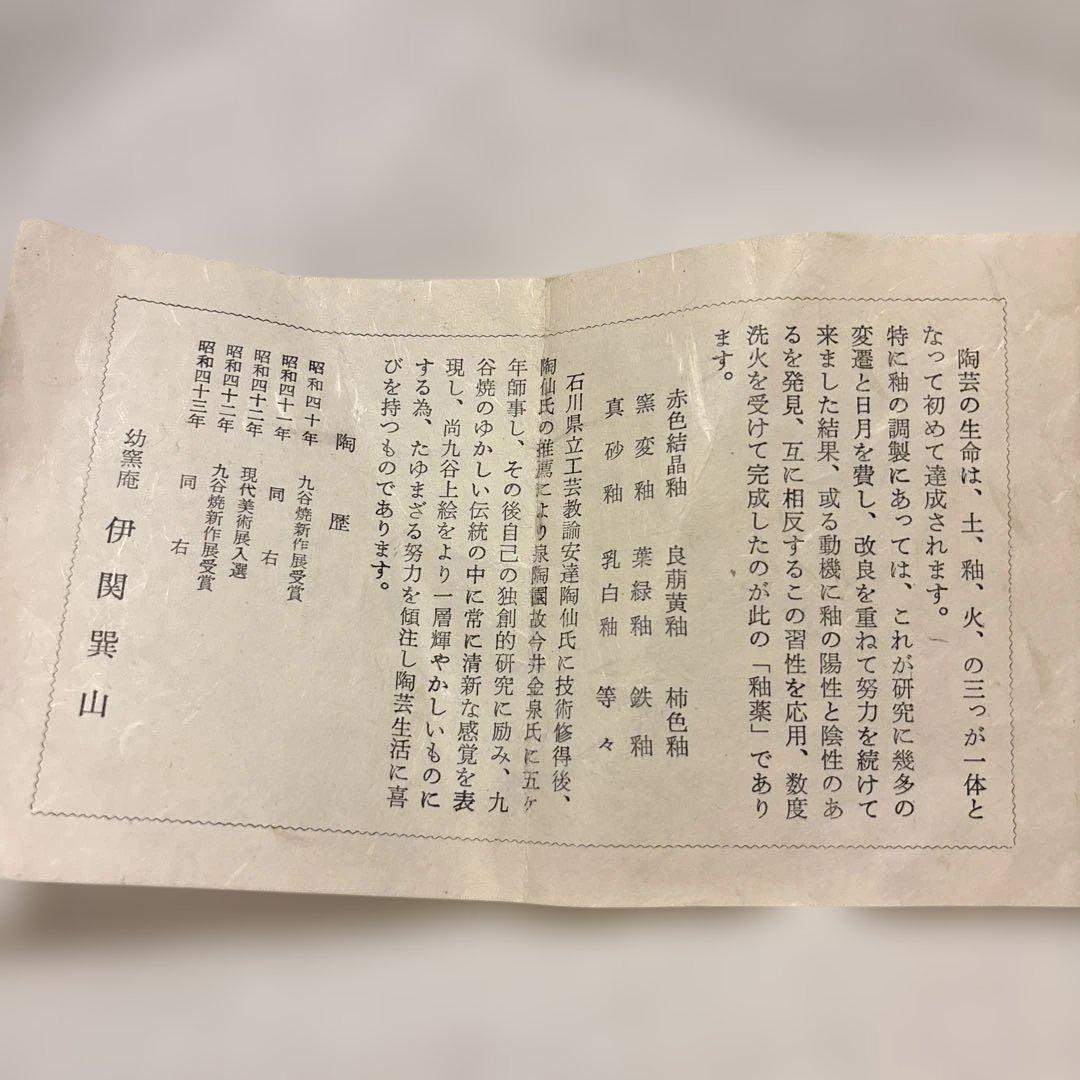 陶芸の生命は、土、釉、火、の三っが一体と
なって初めて達成されます。
特に釉の調製にあっては、これが研究に幾多の
変遷と日月を費し、改良を重ねて努力を続けて
来ました結果、或る動機に釉の陽性と陰性のあ
るを発見、互に相反するこの習性を応用、数度
洗火を受けて完成したのが此の「釉薬」であり
ます。
赤色結晶釉 良萠黄釉 柿色釉
窯変釉 葉緑釉 鉄釉
真砂釉 乳白釉 等々
石川県立工芸教諭安達陶仙氏に技術修得後、
陶仙氏の推薦により泉陶園故今井金泉氏に五ヶ
年師事し、その後自己の独創的研究に励み、九
谷焼のゆかしい伝統の中に常に清新な感覚を表
現し、尚九谷上絵をより一層輝やかしいものに
する為、たゆまざる努力を傾注し陶芸生活に喜
びを持つものであります。
陶歴
昭和四十年 九谷焼新作展受賞
昭和四十一年 同右
昭和四十二年 現代美術展入選
昭和四十二年 九谷焼新作展受賞
昭和四十三年 同右
幼窯庵 伊関巽山